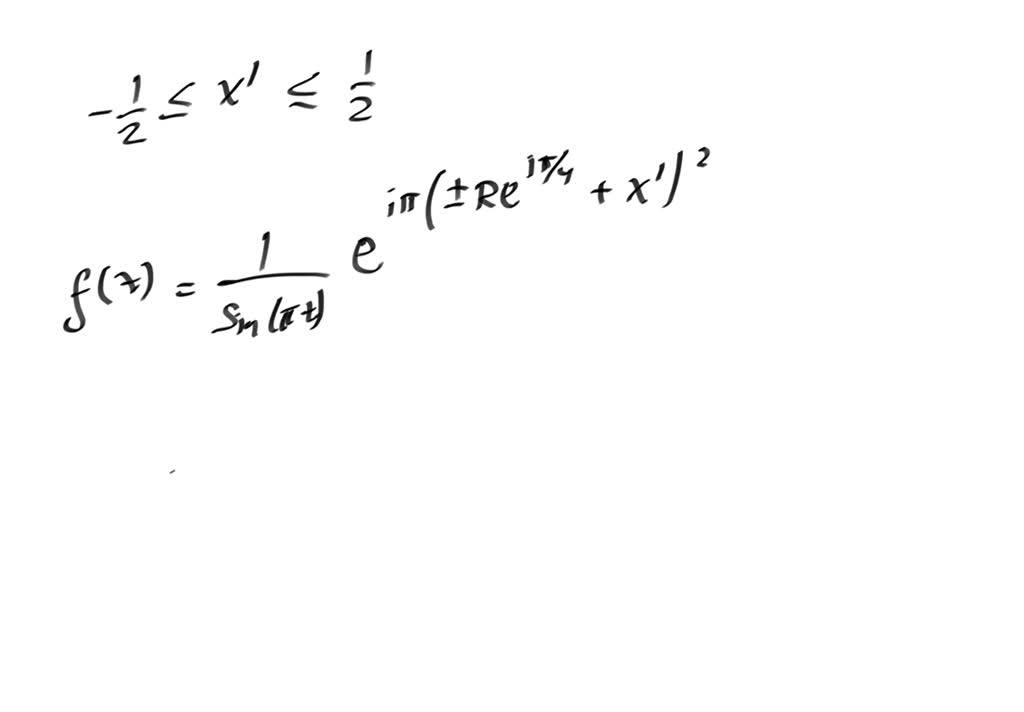 -1/2 ≤ x' ≤ 1/2
f(z) = 1/Sin(πz) e^{iπ(±Re^{iπ/4} + x')^2}